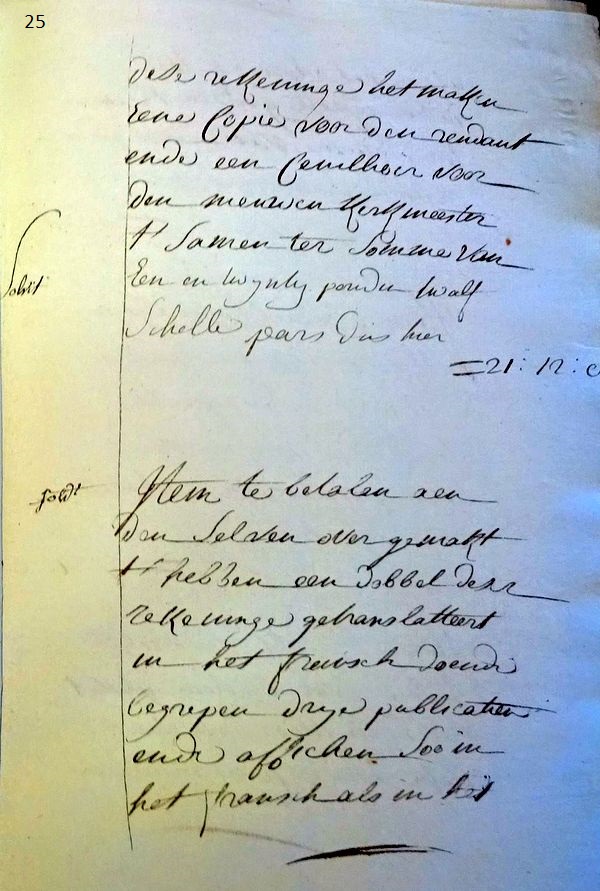 25
dese rekeninge het maken
Eene Copie voor den rendant
ende een voor
den nieuwen Kerkmeester
t' samen ter somme van
Een en twynty ponden twalf
Schelle pars dus hier
=21: 12: 0
Solvit
Item te betalen aen
den Selven over gemakt
t' hebben een dobbel deser
rekeninge getranslatteert
in het fransch doende
begrepen drye publicatien
ende affichen Soo in
het fransch als in het
Solvt